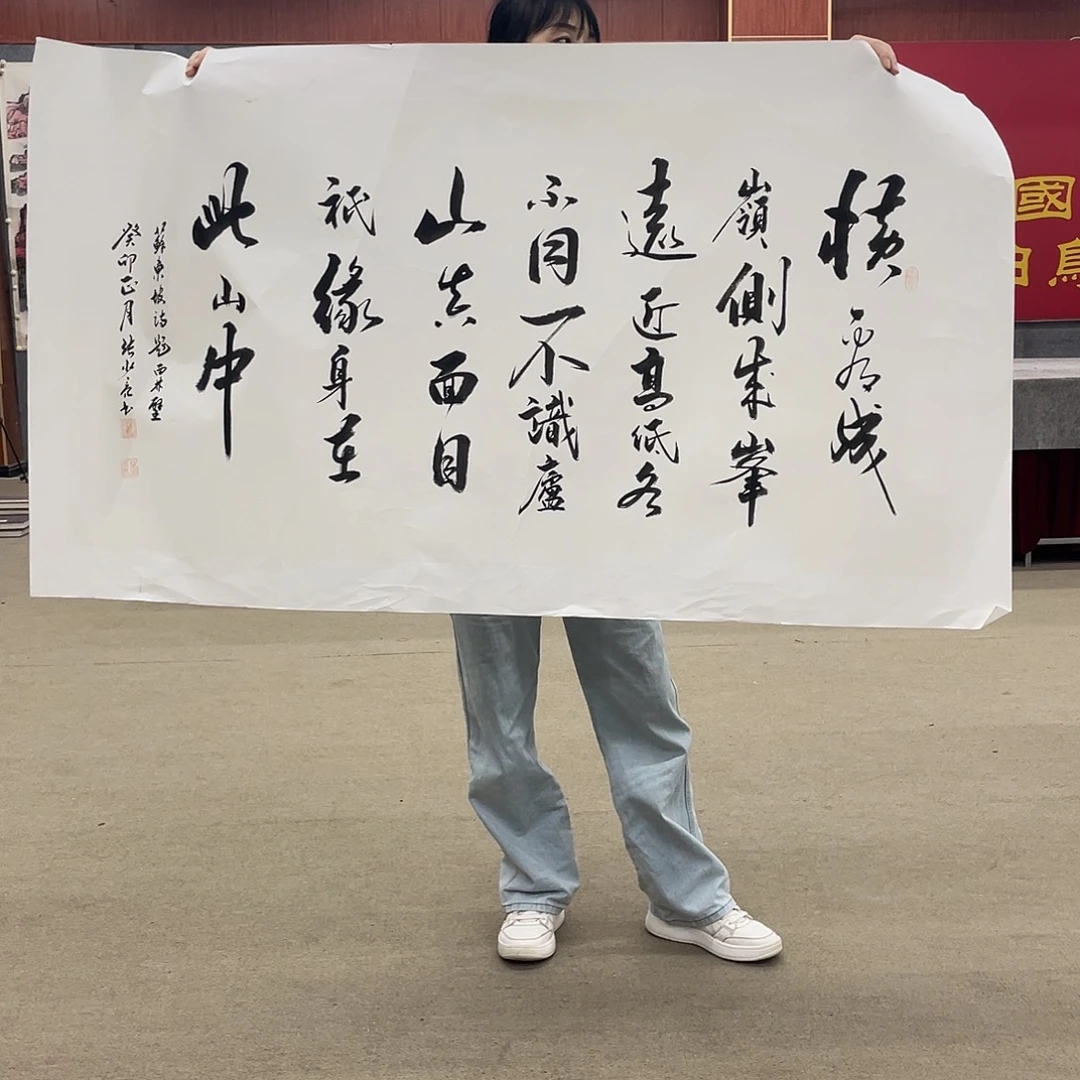 橫看成
嶺側成峯
遠近高低各
不同不識廬
山真面目
祇緣身在
此山中
蘇東坡詩題西林壁
癸卯正月
國